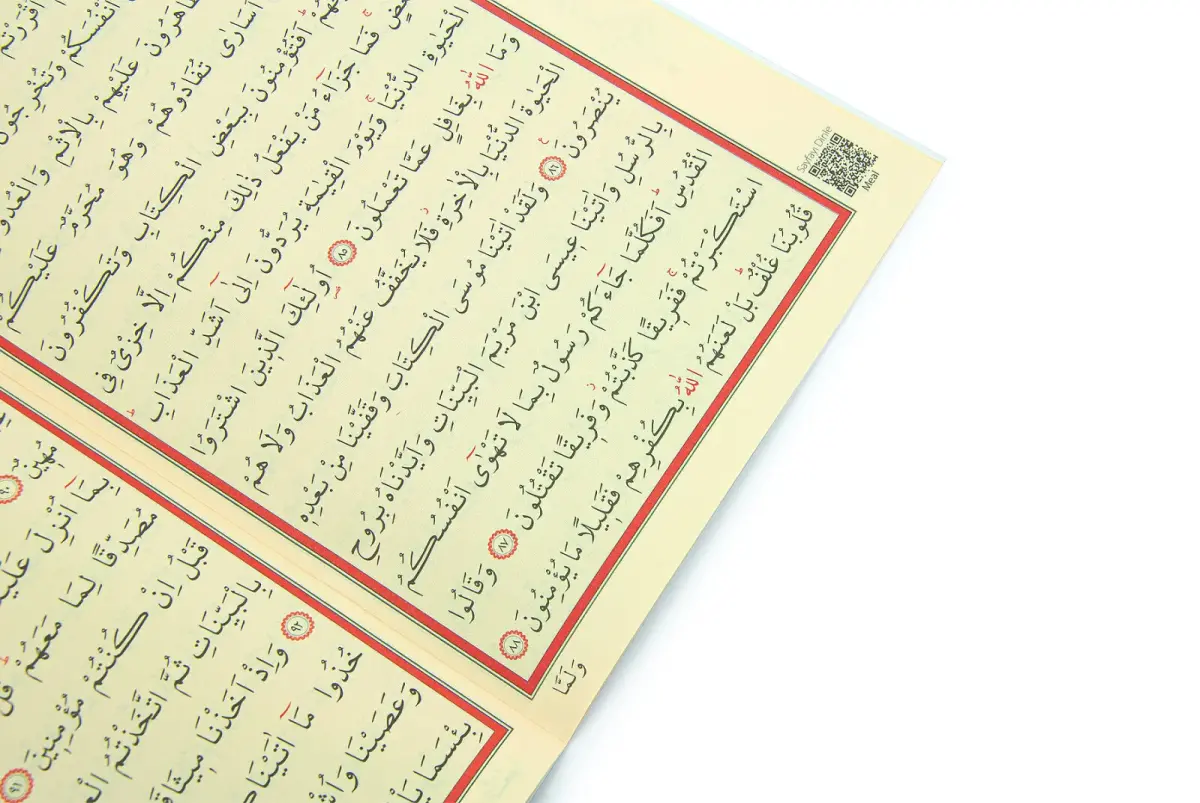 اَقْرَرْتُمْ
اَنْفُسَكُمْ وَتُخْرِجُونَ
عَلَيْهِمْ بِالْاِثْمِ
اُسَارٰى تُفَادُوهُمْ وَهُوَ مُحَرَّمٌ عَلَيْكُمْ
اَفَتُؤْمِنُونَ بِبَعْضِ الْكِتَابِ وَتَكْفُرُونَ
فَمَا جَزَٓاءُ مَنْ يَفْعَلُ ذٰلِكَ مِنْكُمْ اِلَّا خِزْىٌ فِى
الْحَيٰوةِ الدُّنْيَاۚ وَيَوْمَ الْقِيٰمَةِ يُرَدُّونَ اِلٰٓى اَشَدِّ الْعَذَابِۜ
وَمَا اللّٰهُ بِغَافِلٍ عَمَّا تَعْمَلُونَ ٨٥ اُولٰٓئِكَ الَّذِينَ اشْتَرَوُا
الْحَيٰوةَ الدُّنْيَا بِالْاٰخِرَةِۘ فَلَا يُخَفَّفُ عَنْهُمُ الْعَذَابُ وَلَا هُمْ
يُنْصَرُونَ ٨٦ وَلَقَدْ اٰتَيْنَا مُوسَى الْكِتَابَ وَقَفَّيْنَا مِنْ بَعْدِهِ
بِالرُّسُلِ وَاٰتَيْنَا عِيسَى ابْنَ مَرْيَمَ الْبَيِّنَاتِ وَاَيَّدْنَاهُ بِرُوحِ
الْقُدُسِۜ اَفَكُلَّمَا جَٓاءَكُمْ رَسُولٌ بِمَا لَا تَهْوٰٓى اَنْفُسُكُمُ
اسْتَكْبَرْتُمْۚ فَفَرِيقًا كَذَّبْتُمْ وَفَرِيقًا تَقْتُلُونَ ٨٧ وَقَالُوا
قُلُوبُنَا غُلْفٌۜ بَلْ لَعَنَهُمُ اللّٰهُ بِكُفْرِهِمْ فَقَلِيلًا مَا يُؤْمِنُونَ ٨٨
وَلَمَّا
Sayfayı Dinle
Meal
مُهِينٌ ٩٠
بِمَٓا اُنْزِلَ
مُصَدِّقًا لِمَا مَعَهُمْۜ قُلْ
قَبْلُ اِنْ كُنْتُمْ مُؤْمِنِينَ ٩١
بِالْبَيِّنَاتِ ثُمَّ اتَّخَذْتُمُ
٩٢ وَاِذْ اَخَذْنَا
خُذُوا مَٓا
وَعَصَيْنَا
بِئْسَمَا